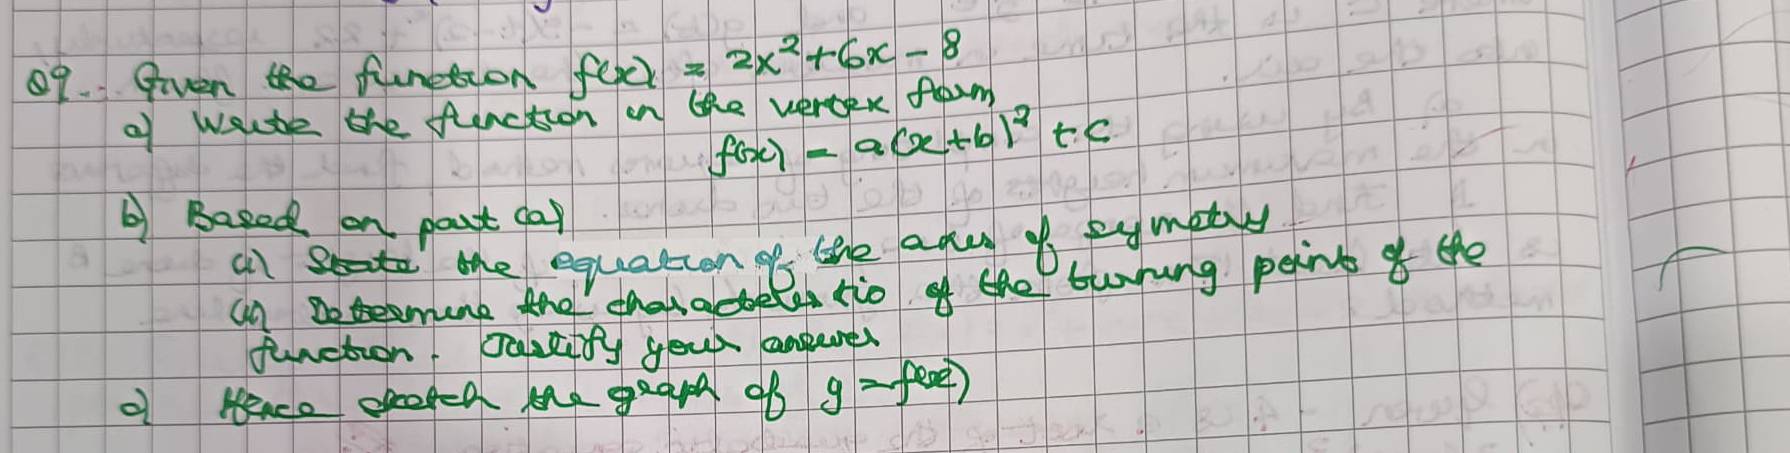 Q9. Given the function f(x) = 2x² + 6x - 8
a) Write the function in the vertex form
f(x) = a(x+b)² + c
b) Based on part (a)
(i) State the equation of the axes of symetry
(ii) Determine the characteristic of the turning point of the
function. Justify your answer
c) Hence sketch the graph of y = f(x)